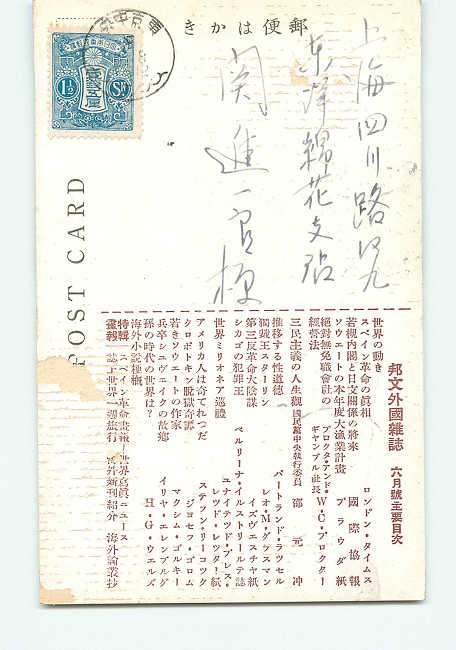 郵便はかき
POST CARD
1½ Sn
上海四川路四九
東洋綿花支店
関進一郎様
邦文外國雜誌 六月號主要目次
世界の動き ロンドン・タイムス
スペイン革命の眞相 國際協報
若槻内閣と日支關係の將來
ソウエートの本年度大漁業計畫 プラウダ紙
絶對無免職會社の プロクタ・アンド・
經營法 ギャンブル社長 W・C・プロクター
三民主義の人生觀 國民黨中央執行委員 邵元冲
推移する性道德 バートランド・ラツセル
獨裁王スターリン レオ・M・グラスマン
第三反革命大陰謀 イズヴェスチャ紙
シカゴの犯罪王 ベルリーナ・イルストリールテ誌
世界ミリオネア巡禮 ユナイテツド・プレス・
レツド・レツター紙
アメリカ人は奇てれつだ ステフン・リーコツク
クロポトキン脱獄奇譚 ジョセフ・ゴロム
若きソウエートの作家 マクシム・ゴルキー
兵卒シュヴェイクの故鄕 イリヤ・エレンブルグ
孫の時代の世界は? H・G・ウエルズ
海外小說種
特輯 スペイン革命畫報 世界寫眞ニュース
畫報 誌上世界一週旅行 海外新刊紹介 海外論叢抄